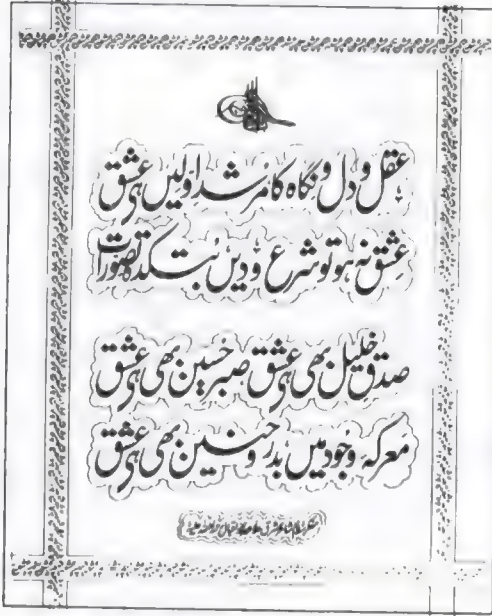 عقل و دل و نگاہ کا مرشد اولیں ہی عشق
عشق نہ ہو تو شرع و دیں بت کدۂ تصورات
صدق خلیل بھی ہی عشق صبر حسین بھی ہی عشق
معرکہ وجود میں بدر و حنین بھی ہی عشق